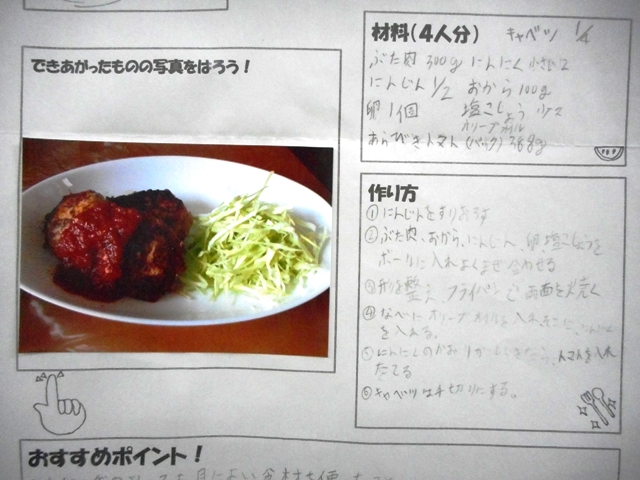 できあがったものの写真をはろう!
材料(4人分) キャベツ 1/4
ぶた肉 300g にんにく 小さじ2
にんじん 1/2 おから 100g
卵 1個 塩こしょう 少々
オリーブオイル
あらびきトマト (パック) 388g
作り方
① にんじんをすりおろす
② ぶた肉、おから、にんじん、卵、塩こしょうを
ボールに入れよくまぜ合わせる
③ 形を整え、フライパンで両面を焼く
④ なべにオリーブオイルを入れ
を入れる。
⑤ にんにくのかおりがしてきたら、トマトを入れ
たてる
⑥ キャベツは千切りにする。
おすすめポイント!